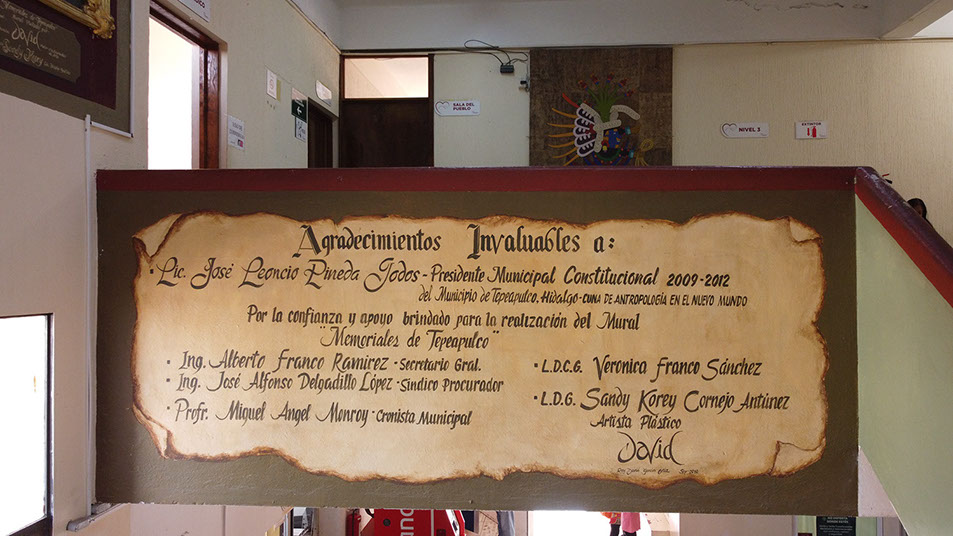 David
SALA DEL PUEBLO
NIVEL 3
EXTINTOR
Agradecimientos Invaluables a:
• Lic. José Leoncio Pineda Godos - Presidente Municipal Constitucional 2009-2012
del Municipio de Tepeapulco, Hidalgo - CUNA DE ANTROPOLOGÍA EN EL NUEVO MUNDO
Por la confianza y apoyo brindado para la realización del Mural
"Memoriales de Tepeapulco"
• Ing. Alberto Franco Ramirez - Secretario Gral.
• Ing. José Alfonso Delgadillo López - Síndico Procurador
• Profr. Miguel Angel Monroy - Cronista Municipal
• L.D.C.G. Veronica Franco Sánchez
• L.D.G. Sandy Korey Cornejo Antúnez
Artista Plástico
David